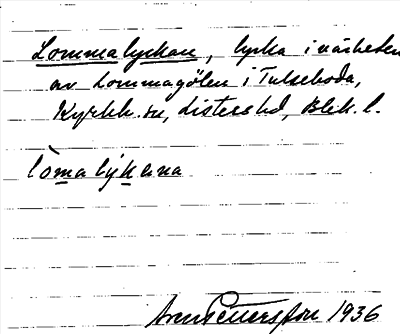 Lommalyckan, lycka i närheten
av Lommagölen i Tulseboda,
Kyrkh. sn, Listers hd, Blek. l.
lòmalýkana
Pettersson 1936